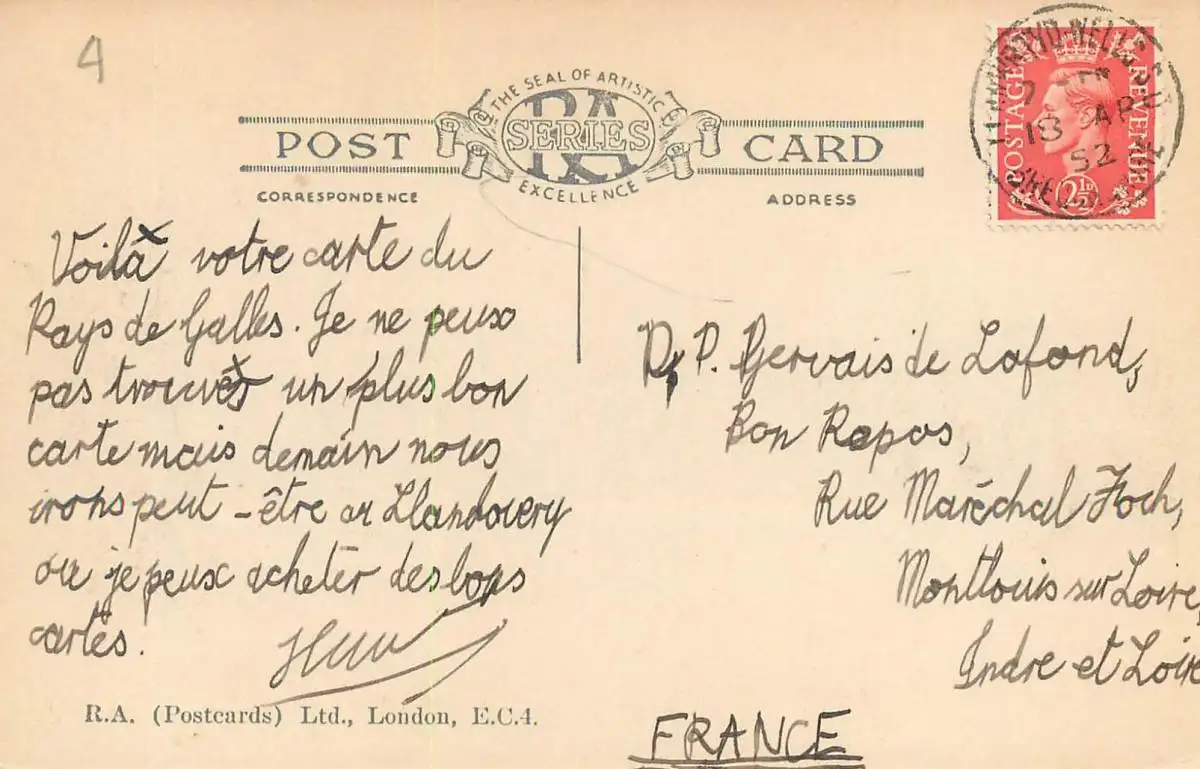 4
THE SEAL OF ARTISTIC
RA
SERIES
EXCELLENCE
POST CARD
CORRESPONDENCE
ADDRESS
POSTAGE REVENUE
2½D
LLANWRTYD WELLS
18 AP
52
BRECONSHIRE
Voilà votre carte du
Pays de Galles. Je ne peux
pas trouver un plus bon
carte mais demain nous
irons peut-être a Llandovery
ou je peux acheter des bons
cartes.
D, P. Gervais de Lafond,
Bon Repos,
Rue Maréchal Foch,
Montlouis sur Loire,
Indre et Loire
FRANCE
R.A. (Postcards) Ltd., London, E.C.4.